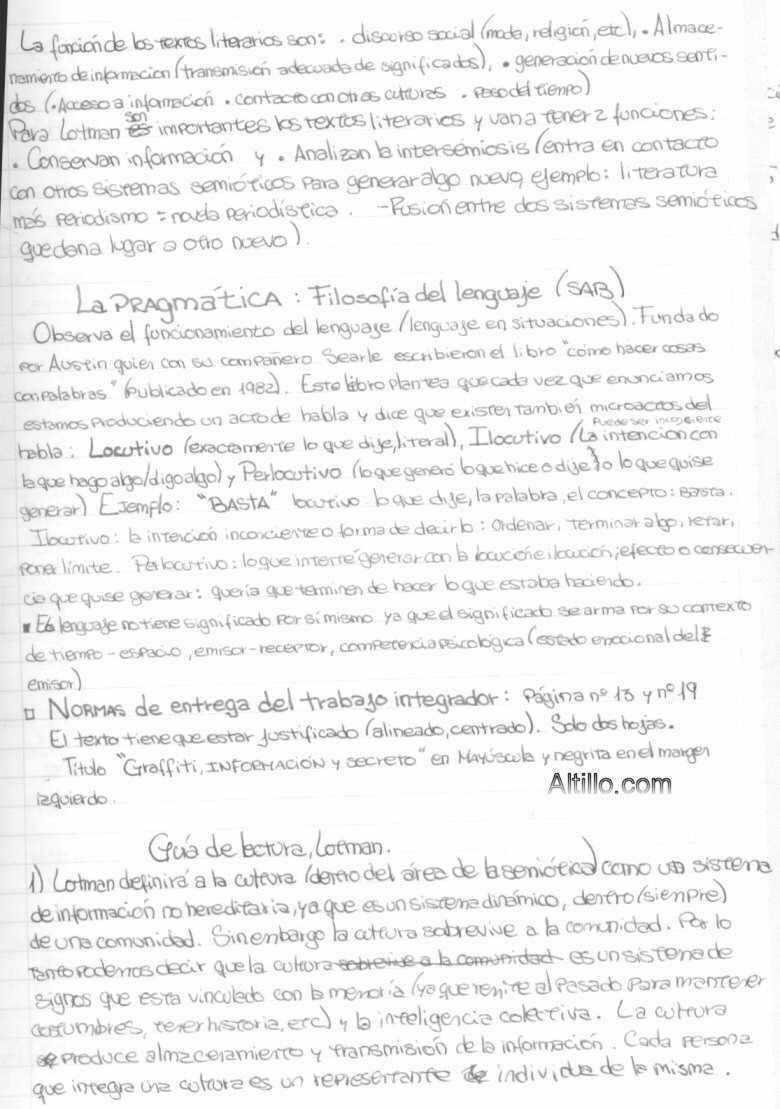 La función de los textos literarios son: • discurso social (moda, religión, etc), • Almace-
namiento de informacion (transmisión adecuada de significados), • generación de nuevos senti-
dos (• Acceso a información • contacto con otras culturas • Paso del tiempo)
Para Lotman son importantes los textos literarios y van a tener 2 funciones:
• Conservan información y • Analizan la intersemiosis (entra en contacto
con otros sistemas semióticos para generar algo nuevo, ejemplo: literatura
más periodismo = novela periodística. - Fusión entre dos sistemas semióticos
que dan a lugar a otro nuevo).
La PRAGmáTICA: Filosofía del lenguaje (SAB)
Observa el funcionamiento del lenguaje (lenguaje en situaciones). Fundado
por Austin quien con su compañero Searle escribieron el libro "cómo hacer cosas
con palabras" (Publicado en 1982). Este libro plantea que cada vez que enunciamos
estamos produciendo un acto de habla y dice que existen también microactos del
habla: Locutivo (exactamente lo que dije, literal), Ilocutivo (La intencion con
Puede ser inconciente
la que hago algo/digo algo) y Perlocutivo (lo que generó lo que hice o dije} o lo que quise
generar) Ejemplo: "BASTA" locutivo lo que dije, la palabra, el concepto: Basta.
Ilocutivo: la intención inconciente o forma de decirlo: Ordenar, terminar algo, retar,
poner límite. Perlocutivo: lo que intenté generar con la locución e ilocución, efecto o consecuen-
cia que quise generar: quería que terminen de hacer lo que estaba haciendo.
▪ El lenguaje no tiene significado por sí mismo ya que el significado se arma por su contexto
de tiempo-espacio, emisor-receptor, competencia psicológica (estado emocional del
emisor)
□ NORMAS de entrega del trabajo integrador: Página nº 13 y nº 19
El texto tiene que estar justificado (alineado, centrado). Solo dos hojas.
Título "Graffiti, INFORMACIÓN y secreto" en Mayúscula y negrita en el margen
izquierdo.
Altillo.com
Guía de lectura, Lotman.
1) Lotman definirá a la cultura (dentro del área de la semiótica) como un sistema
de información no hereditaria, ya que es un sistema dinámico, dentro (siempre)
de una comunidad. Sin embargo la cultura sobrevive a la comunidad. Por lo
tanto podemos decir que la cultura sobrevive a la comunidad es un sistema de
signos que esta vinculado con la memoria (ya que remite al pasado para mantener
costumbres, tener historia, etc) y la inteligencia colectiva. La cultura
produce almacenamiento y transmisión de la información. Cada persona
que integra una cultura es un representante individuo de la misma.